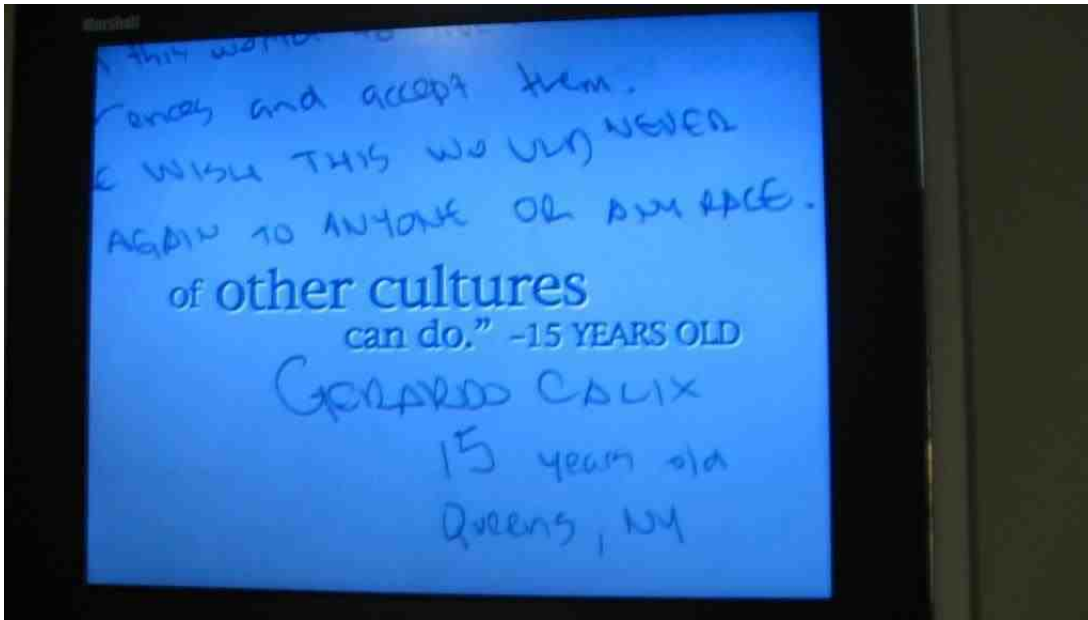 Marshall
this world to
rences and accept them.
WISH THIS WOULD NEVER
AGAIN TO ANYONE OR ANY RACE.
of other cultures
can do." -15 YEARS OLD
GERARDO CALIX
15 years old
Queens, NY